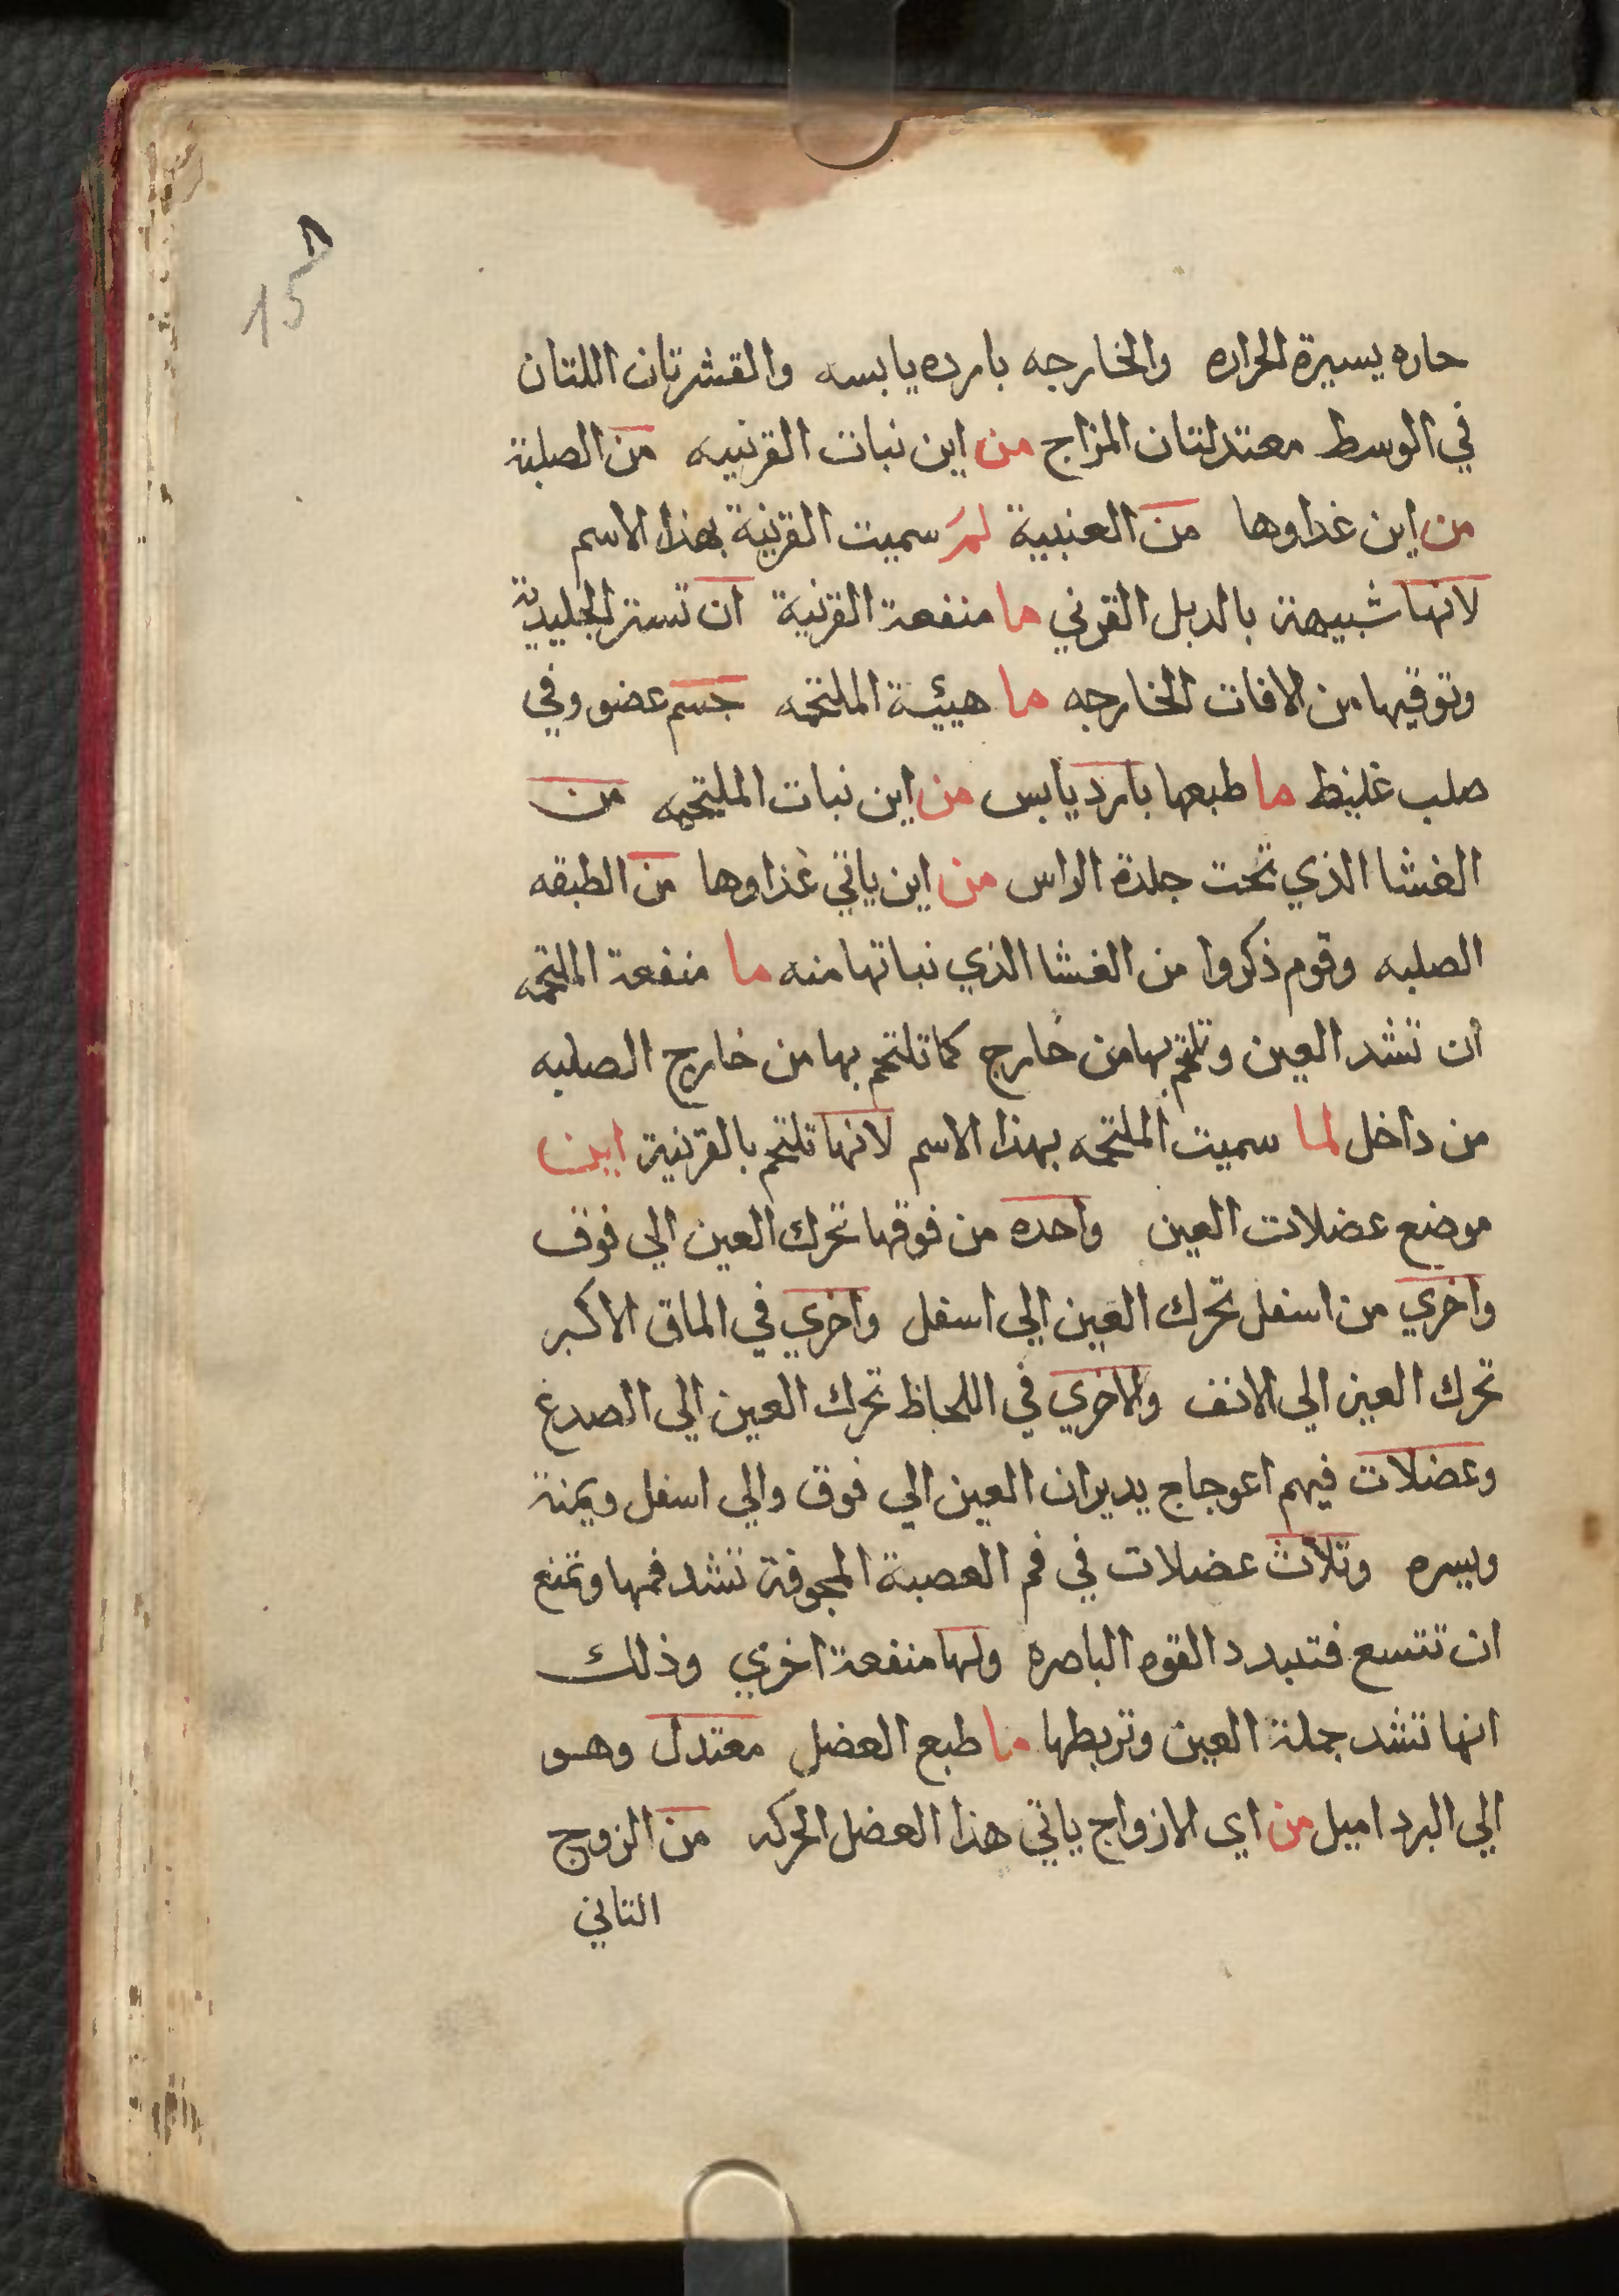 ٨
15
حاره يسيرة الحراره والخارجه بارده يابسه والقشرتان اللتان
في الوسط معتدلتان المزاج من اين نبات القرنيه من الصلبة
من اين غداوها من العنبية لم سميت القرنية بهذا الاسم
لانها شبيهة بالدبل القرني ما منفعة القرنية ان تستر الجليدية
وتوقيها من الافات الخارجه ما هيئية الملتحمه جسم عضروفي
صلب غليظ ما طبعها بارد يابس من اين نبات الملتحمه من
الغشا الذي تحت جلدة الراس من اين ياتي غذاوها من الطبقه
الصلبه وقوم ذكروا من الغشا الذي نباتها منه ما منفعة الملتحمه
ان تشد العين وتلتحم بها من خارج كما تلتحم بها من خارج الصلبه
من داخل لما سميت الملتحمه بهذا الاسم لانها تلتحم بالقرنية اين
موضع عضلات العين واحده من فوقها تحرك العين الي فوق
واخري من اسفل تحرك العين الي اسفل واخري في الماق الاكبر
تحرك العين الي الانف والاخري في اللحاظ تحرك العين الي الصدغ
وعضلات فيهم اعوجاج يديران العين الي فوق والي اسفل ويمنة
ويسره وتلات عضلات في فم العصبة المجوفة تشد فمها وتمنع
ان تتسع فتبدد القوه الباصره ولها منفعة اخري وذلك
انها تشد جملة العين وتربطها ما طبع العضل معتدل وهو
الي البرد اميل من اي الازواج ياتي هذا العضل الحركه من الزوج
التاني